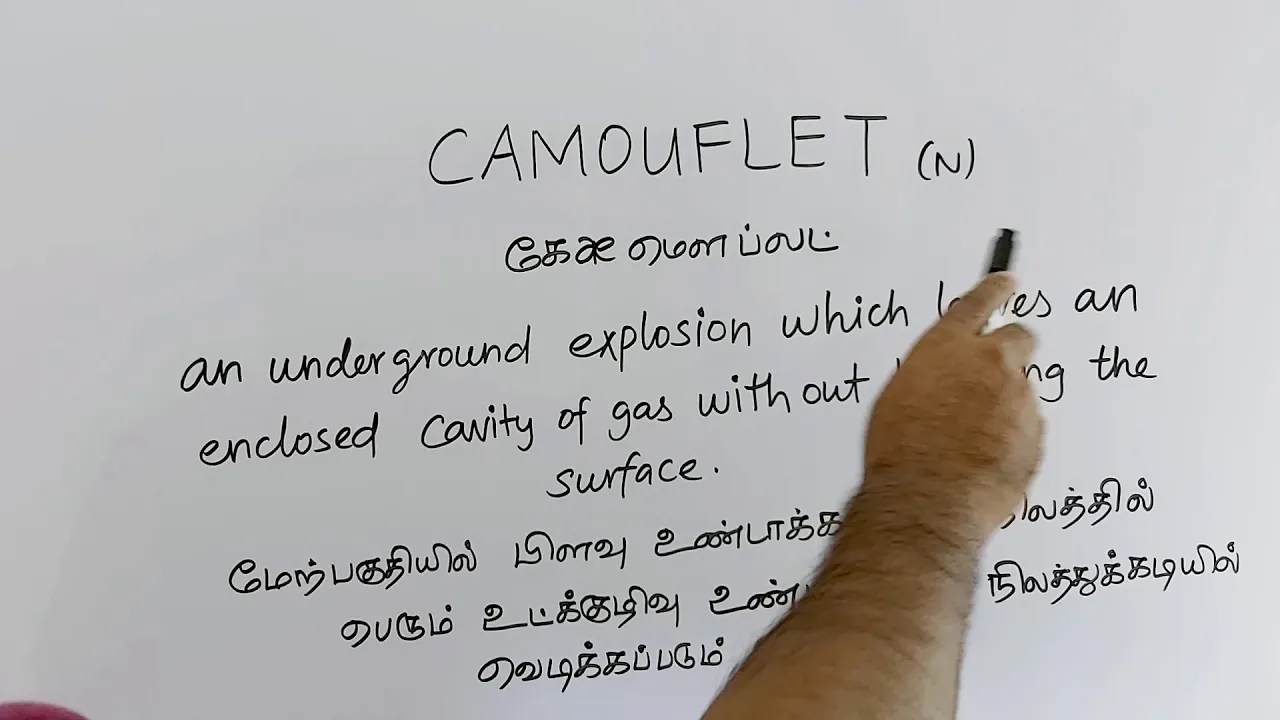 CAMOUFLET (N)
கேமௌப்லட்
an underground explosion which an
enclosed cavity of gas without the
surface.
மேற்பகுதியில் பிளவு
பெரும் உட்க்குழிவு நிலத்துக்கடியில்
வெடிக்கப்படும்